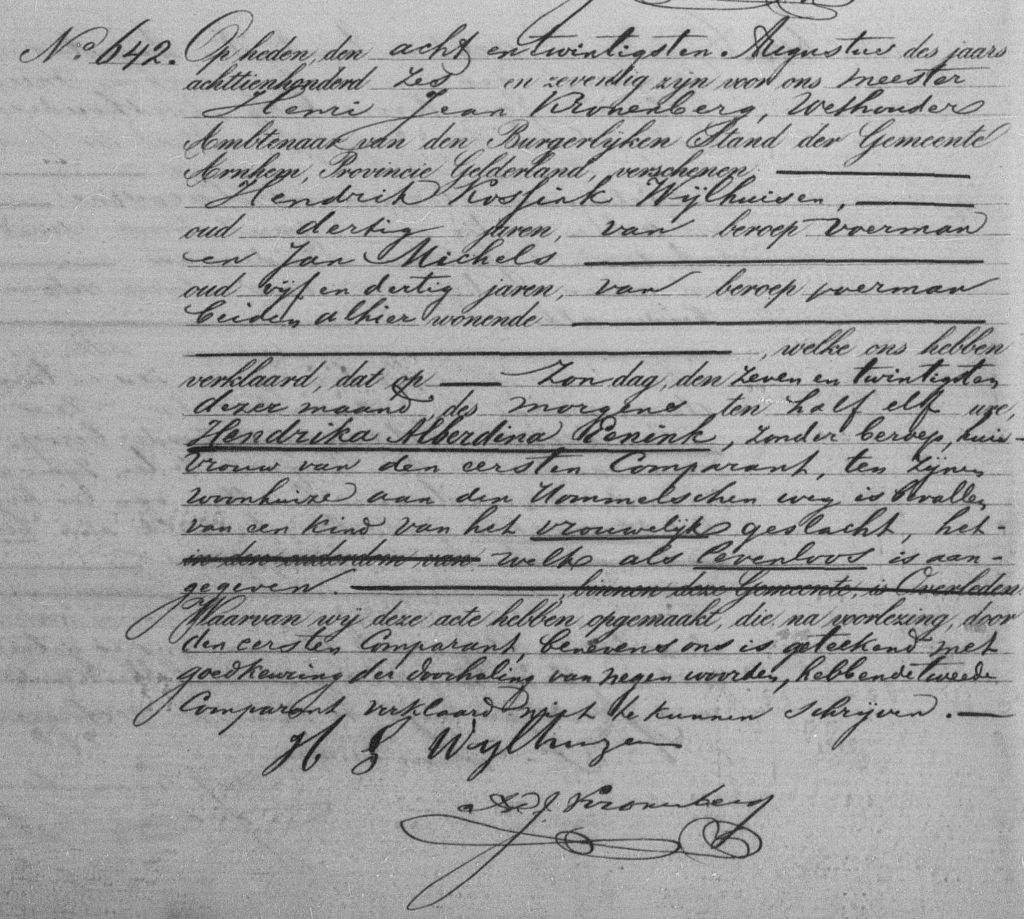 No. 642. Op heden, den acht en twintigsten Augustus des jaars
achttienhonderd zes en zeventig zijn voor ons meester
Henri Jean Kronenberg, Wethouder
Ambtenaar van den Burgerlijken Stand der Gemeente
Arnhem, Provincie Gelderland, verschenen,
Hendrik Wijlhuisen,
oud dertig jaren, van beroep voerman
en Jan Michels
oud vijf en dertig jaren, van beroep voerman
beiden alhier wonende
, welke ons hebben
verklaard, dat op Zondag, den zeven en twintigsten
dezer maand, des morgens ten half elf ure,
Hendrika Alberdina Penink, zonder beroep, huis-
vrouw van den eersten Comparant, ten zijnen
woonhuize aan den Hommelschen weg is bevallen
van een kind van het vrouwelijk geslacht, het-
in den ouderdom van welk als levenloos is aan-
gegeven. , binnen deze Gemeente, is Overleden.
Waarvan wij deze acte hebben opgemaakt, die na voorlezing, door
den eersten Comparant, benevens ons is geteekend met
goedkeuring der doorhaling van negen woorden, hebbende tweede
Comparant verklaard niet te kunnen schrijven.
Wylhuzen
Kronenberg